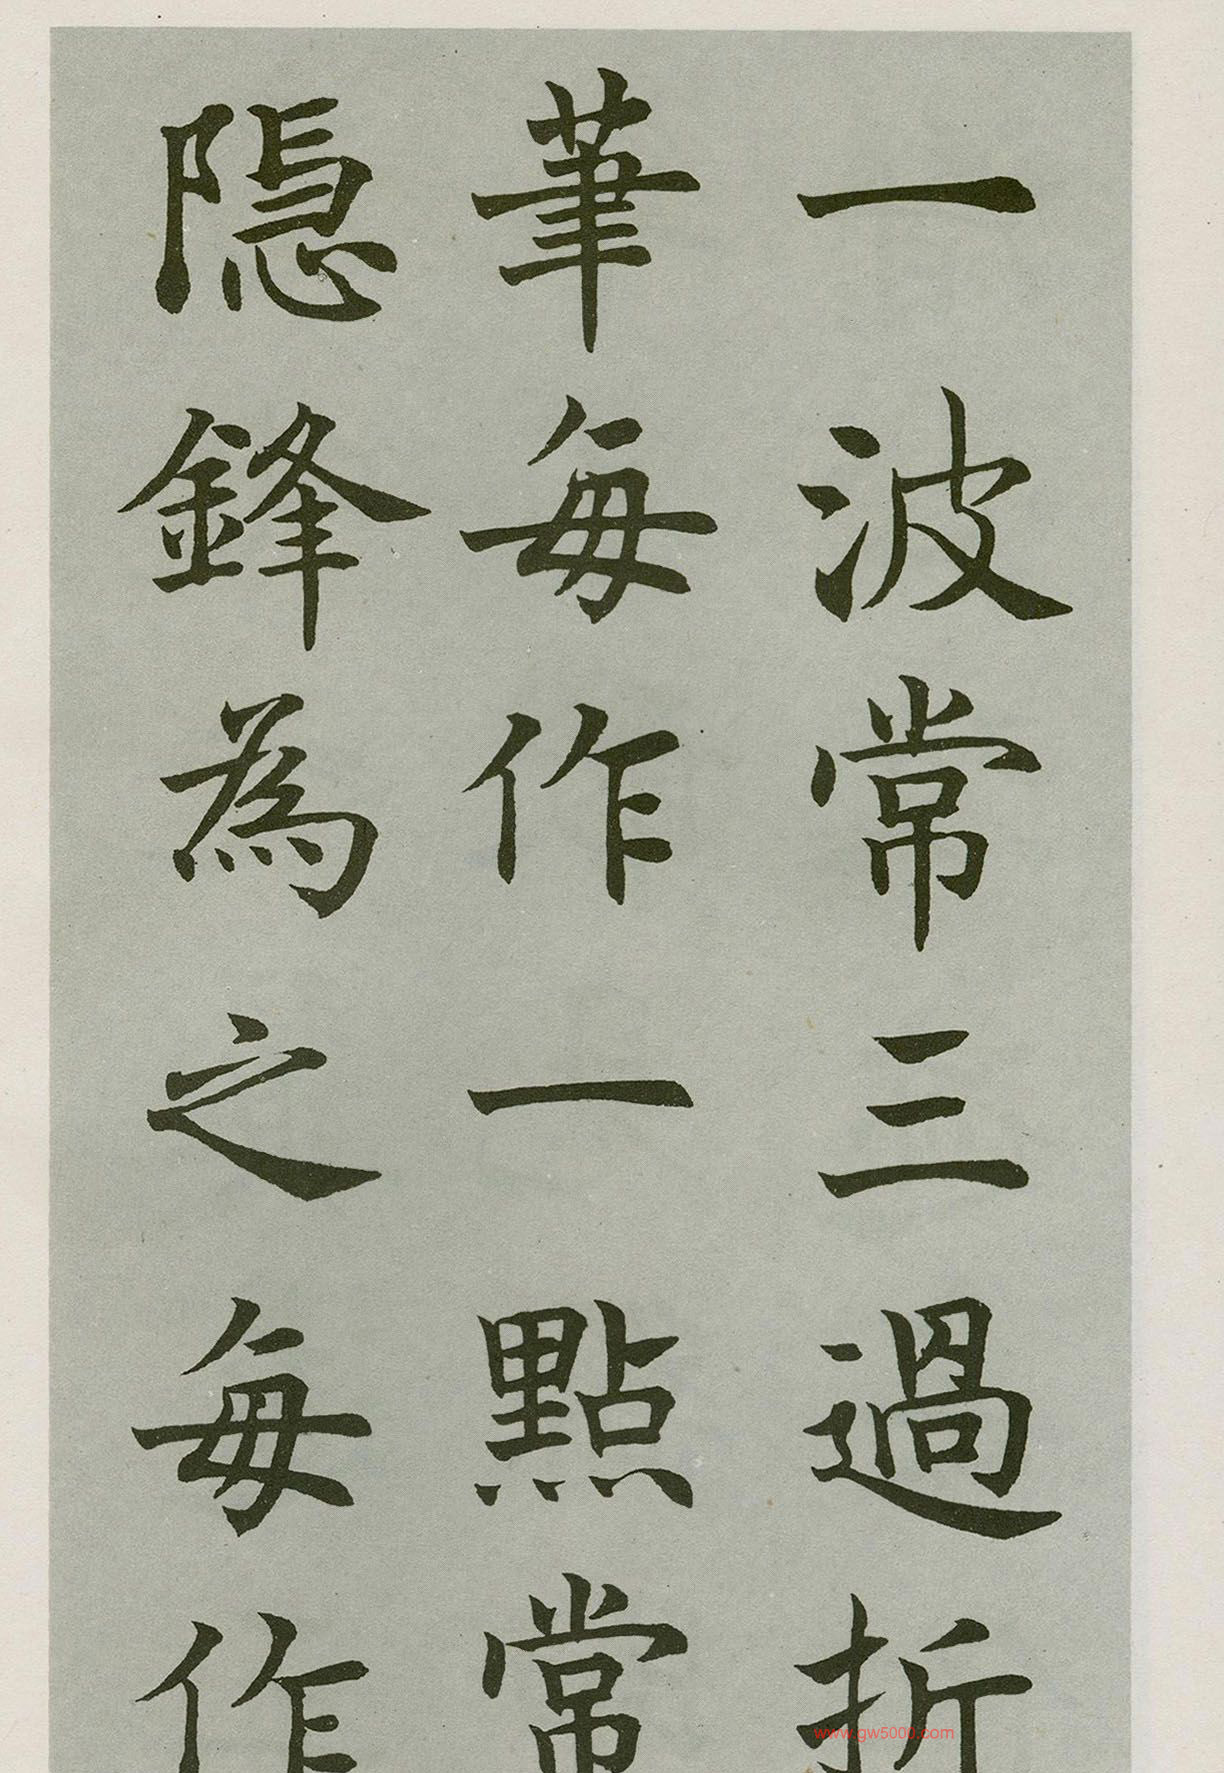 一波常三過折
筆每作一點常
隱鋒為之每作
www.gw5000.com